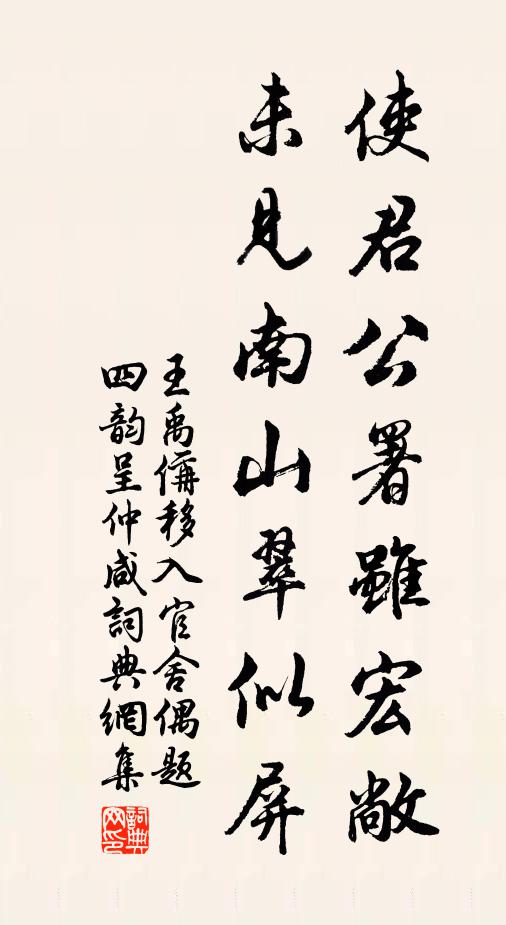 使君公署雖宏敞
未見南山翠似屏
王禹偁移入官舍偶題
四韵呈仲咸詞典網集
詞典網印